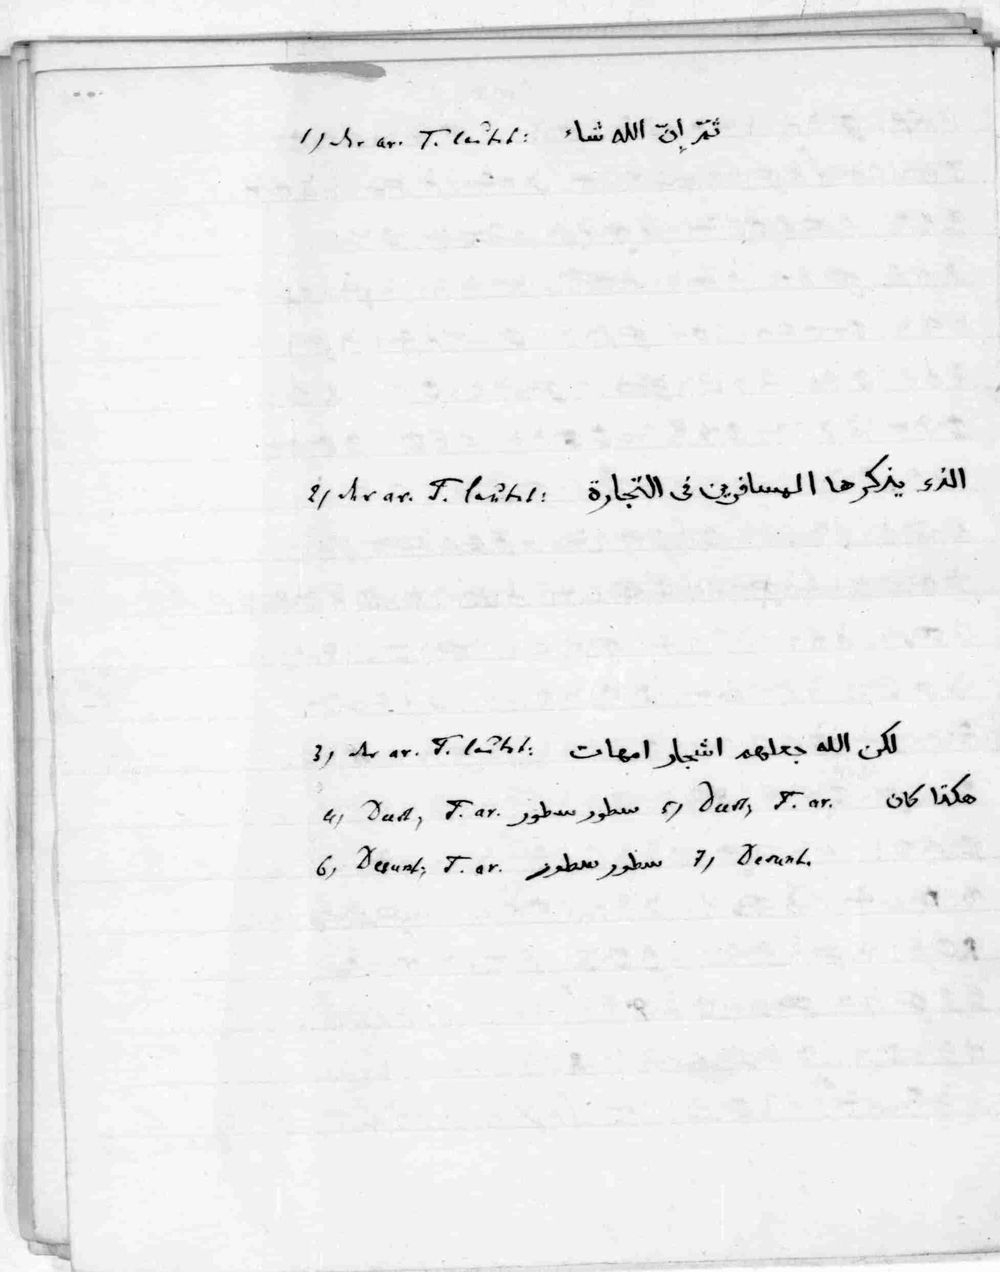 1) Der ar. T. lautet: ثمّ إنّ الله شاء
2) Der ar. T. lautet: الذى يذكرها المسافرين فى التجارة
3) Der ar. T. lautet: لكن الله جعلهم اشجار امهات
4) Dust, T. ar. سطور سطور 5) Dust, T. ar. هكذا كان
6) Desunt, T. ar. سطور سطور 7) Desunt.